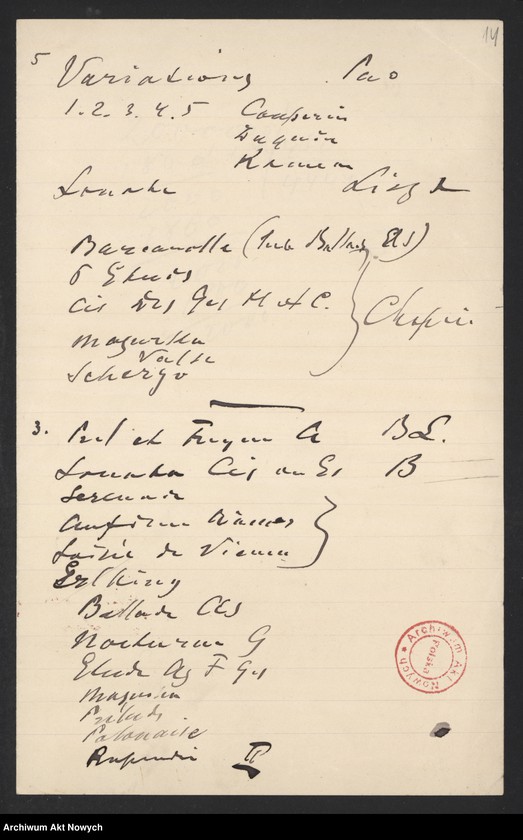 14
5 Variations Pad
1. 2. 3. 4. 5 Couperin
Daquin
Rameau
Sonata Liszt
Barcarolle (lub Ballade As)
6 Etuds
Cis Des Ges H A C.
Mazurka
Valse
Scherzo
Chopin
3. Prel et Fuga A B L.
Sonata Cis ou Es B
Serenade
Auf dem Wasser
Soirée de Vienne
Erlking
Ballade As
Nocturne G
Etude As F Ges
Mazurka
Prelude
Polonaise
Rapsodie II
Archiwum Akt Nowych
Polska
Archiwum Akt Nowych